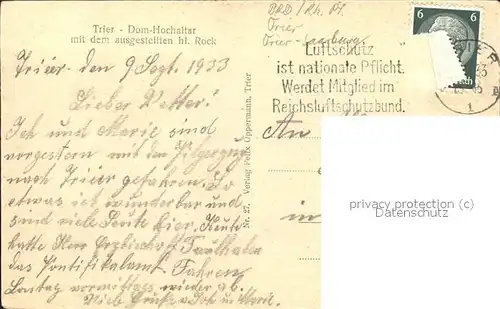 Trier - Dom-Hochaltar
mit dem ausgestellten hl. Rock
Trier
Trier-Saarburg
6 6
Luftschutz
ist nationale Pflicht.
Werdet Mitglied im
Reichsluftschutzbund.
Trier den 9 Sept. 1933
Lieber Vetter!
Ich und Marie sind
vorgestern mit dem Pilgerzug
nach Trier gefahren. So
etwas ist wunderbar und
sind viele Leute hier. Heute
hatte Herr Erzbischof Faulhaber
das Pontifikalamt. Fahren
vormittags wieder ab.
Viele Grüße
Nr. 27. Verlag Felix Oppermann, Trier
An
in
privacy protected (c)
Datenschutz